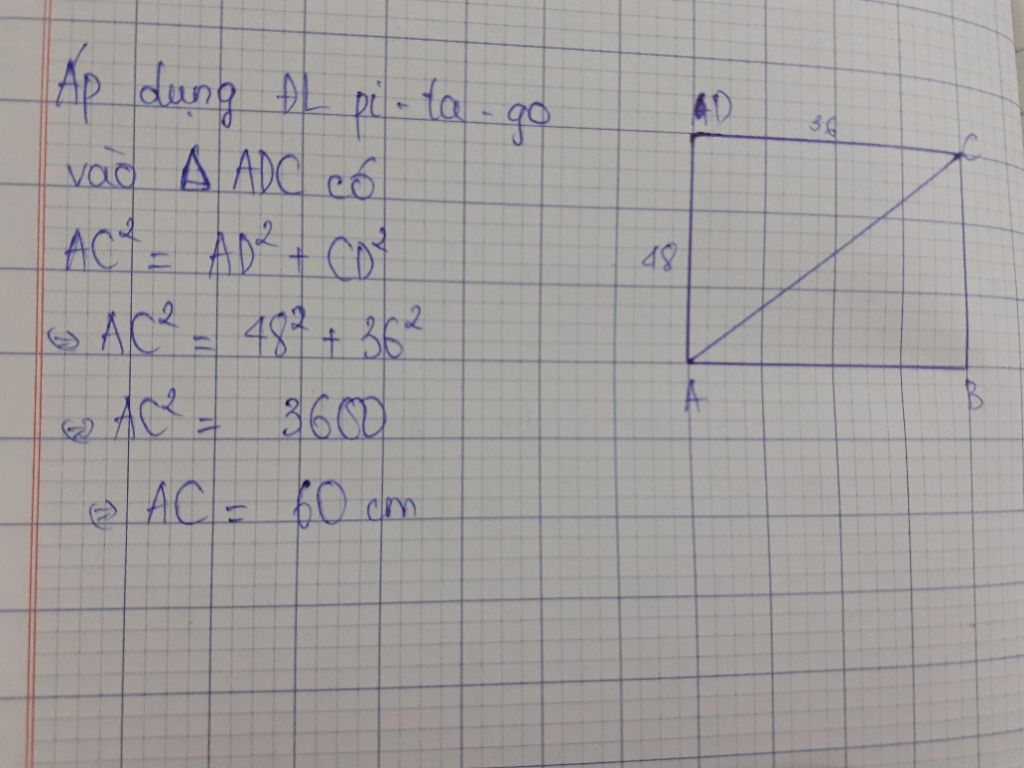 Áp dụng ĐL pi-ta-go
vào Δ ADC có
AC² = AD² + CD²
⇔ AC² = 48² + 36²
⇔ AC² = 3600
⇔ AC = 60 cm
D
36
C
48
A
B